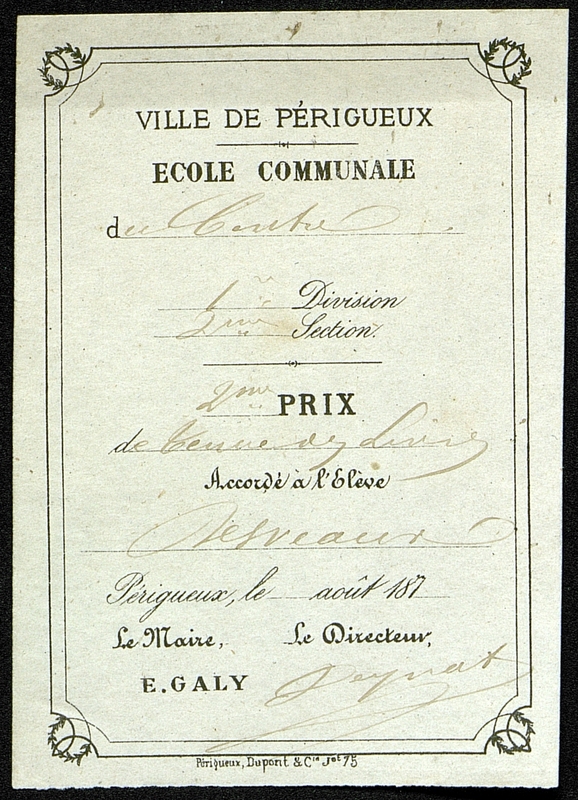 VILLE DE PÉRIGUEUX
ECOLE COMMUNALE
du Centre
1re Division
2me Section.
2me PRIX
de Tenue des Livres
Accordé à l'Elève
Desveaux
Périgueux, le août 187
Le Maire, Le Directeur,
E. GALY
Périgueux, Dupont & Cie Jet 75